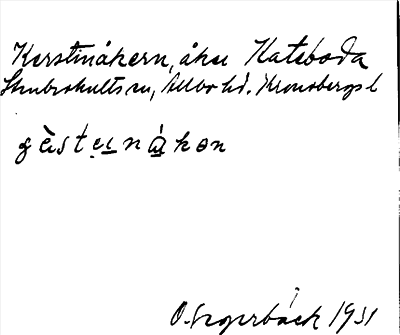 Kerstinåkern, åker Kateboda
Skubrohults sn, Allbo hd. Kronobergs l
gèstęınåkɵn
O. Segerbäck 1931